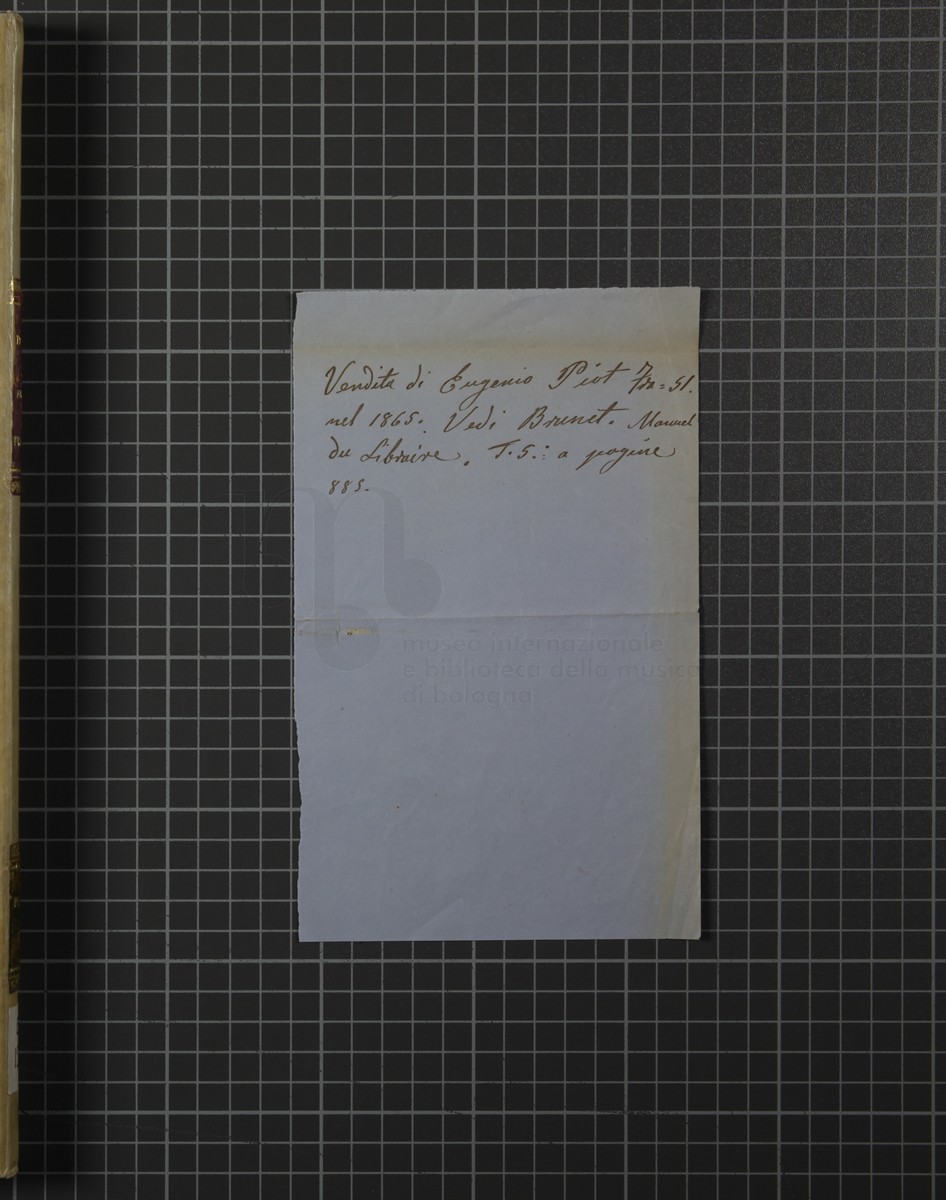 Vendita di Eugenio Piot Fra = 51.
nel 1865. Vedi Brunet. Manuel
du Libraire. T. 5.: a pagine
885.
museo internazionale
e biblioteca della musica
di bologna